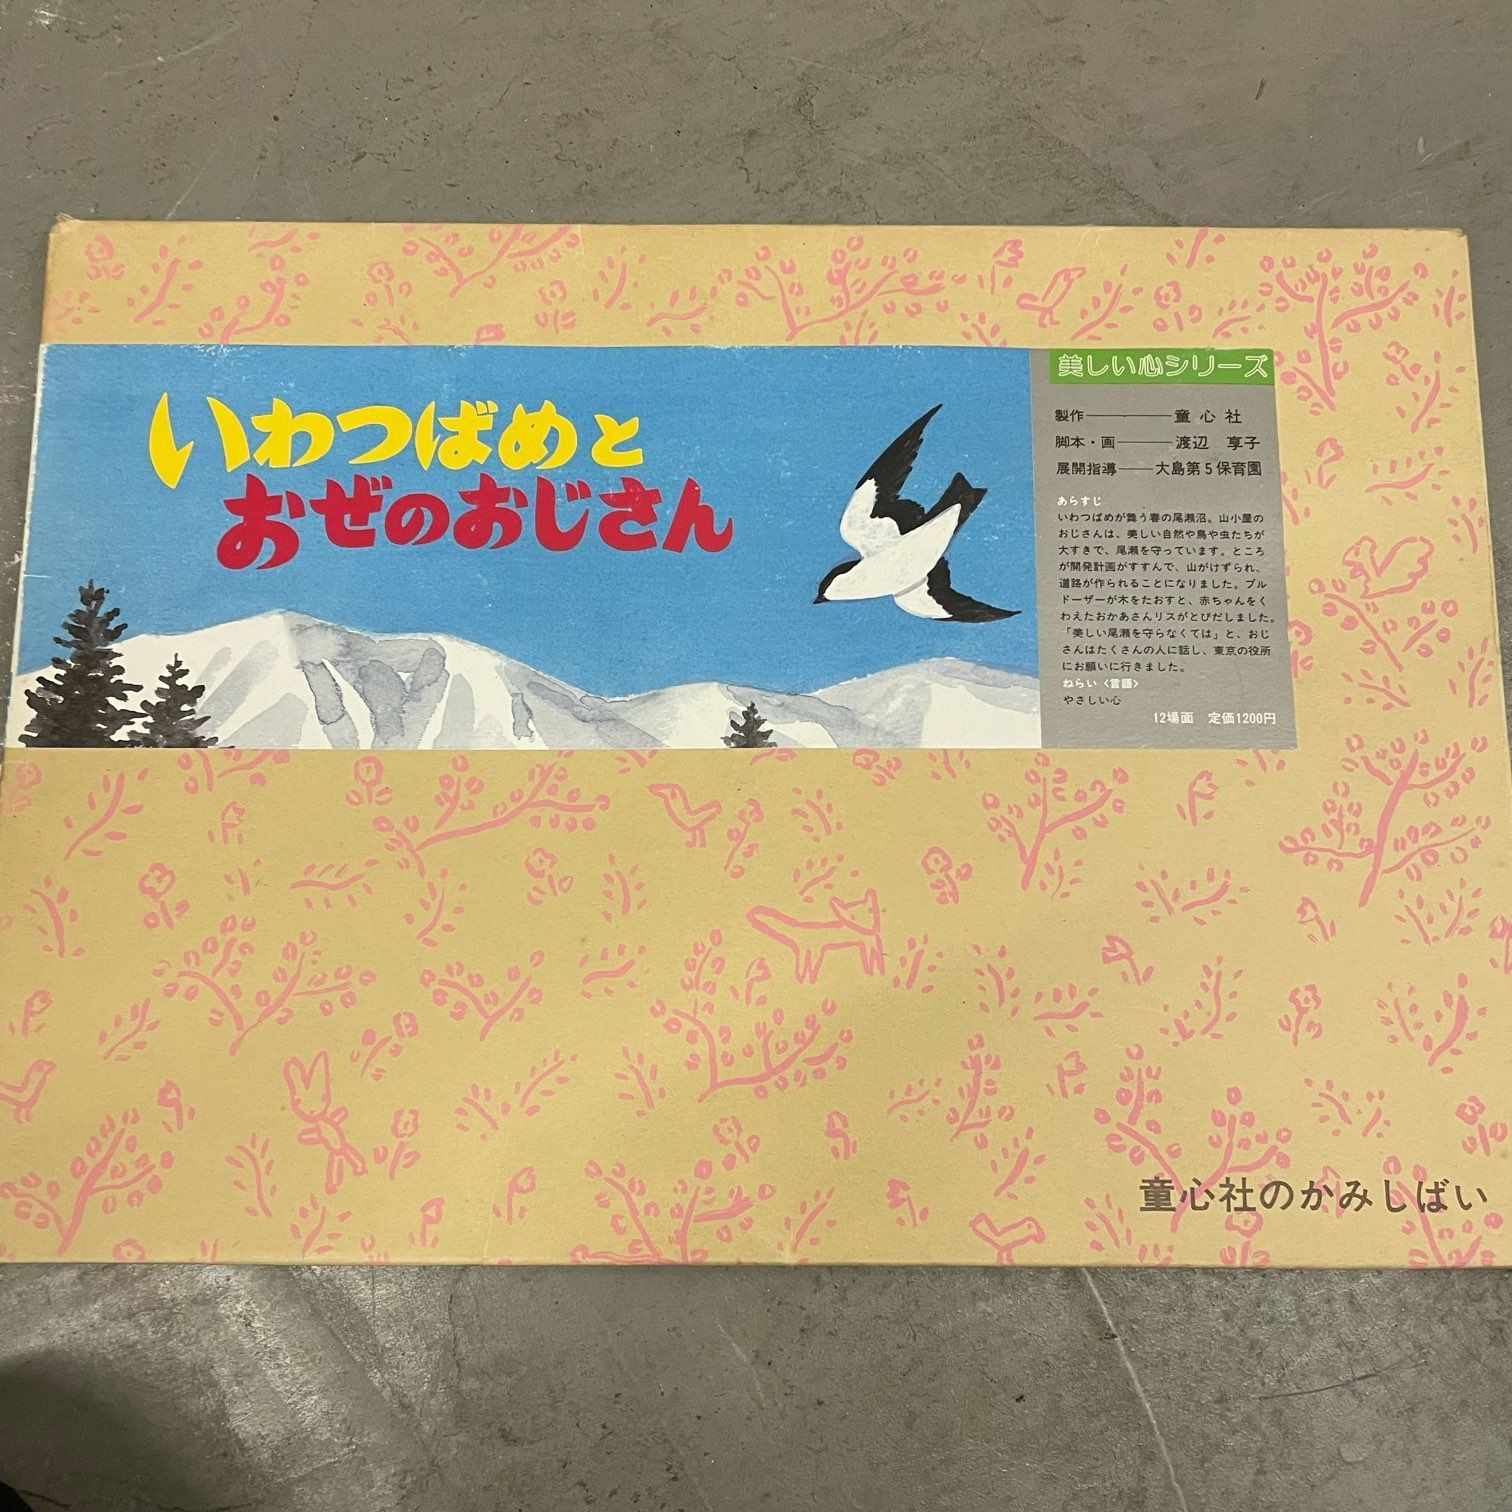 いわつばめと
おぜのおじさん
美しい心シリーズ
製作――――童心社
脚本・画―――渡辺　享子
展開指導――大島第5保育園
あらすじ
いわつばめが舞う春の尾瀬沼。山小屋の
おじさんは、美しい自然や鳥や虫たちが
大すきで、尾瀬を守っています。ところ
が開発計画がすすんで、山がけずられ、
道路が作られることになりました。ブル
ドーザーが木をたおすと、赤ちゃんをく
わえたおかあさんリスがとびだしました。
「美しい尾瀬を守らなくては」と、おじ
さんはたくさんの人に話し、東京の役所
にお願いに行きました。
ねらい〈言語〉
やさしい心
12場面　定価1200円
童心社のかみしばい